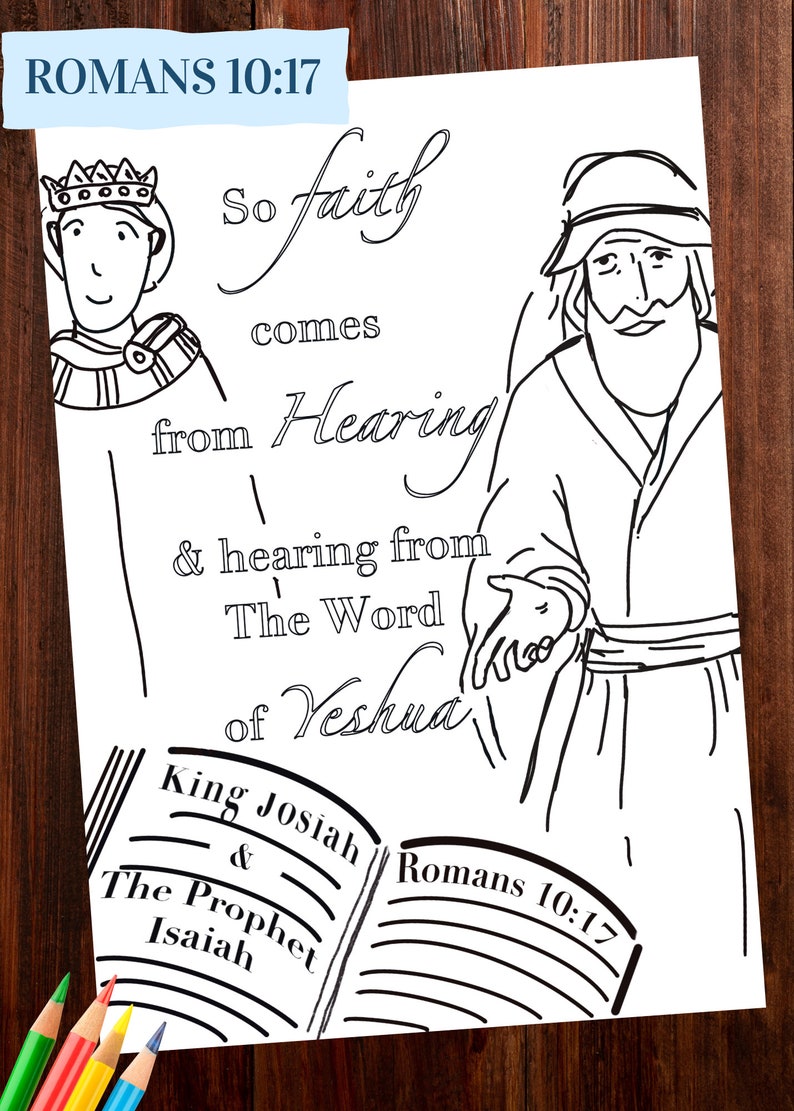 ROMANS 10:17
So faith
comes
from Hearing
& hearing from
The Word
of Yeshua
King Josiah
&
The Prophet
Isaiah
Romans 10:17